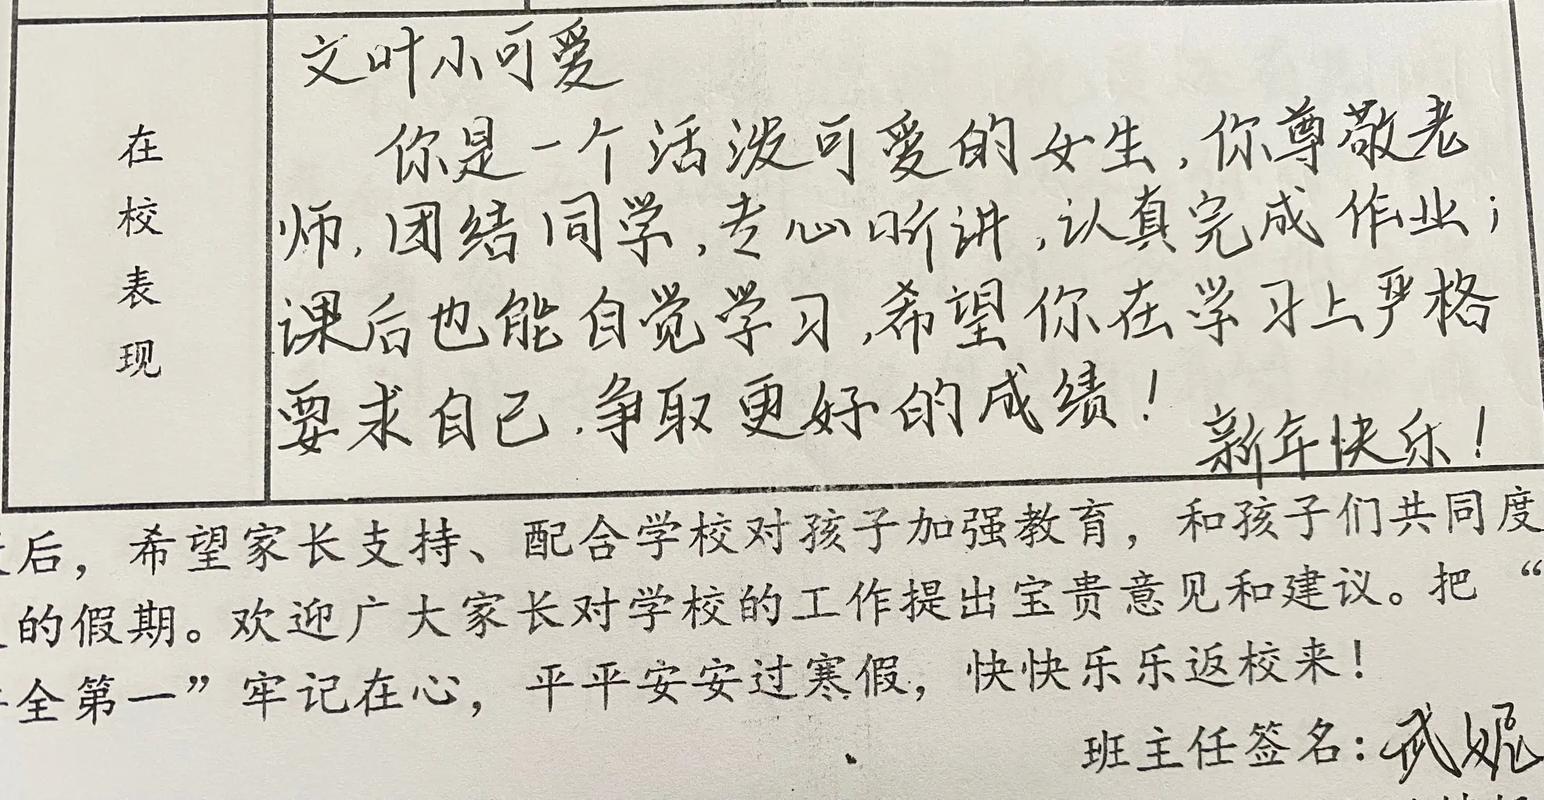 在校表现
文叶小可爱
你是一个活泼可爱的女生,你尊敬老
师,团结同学,专心听讲,认真完成作业;
课后也能自觉学习,希望你在学习上严格
要求自己,争取更好的成绩!
新年快乐!
后,希望家长支持、配合学校对孩子加强教育,和孩子们共同度
的假期。欢迎广大家长对学校的工作提出宝贵意见和建议。把“
全第一”牢记在心,平平安安过寒假,快快乐乐返校来!
班主任签名:武妮